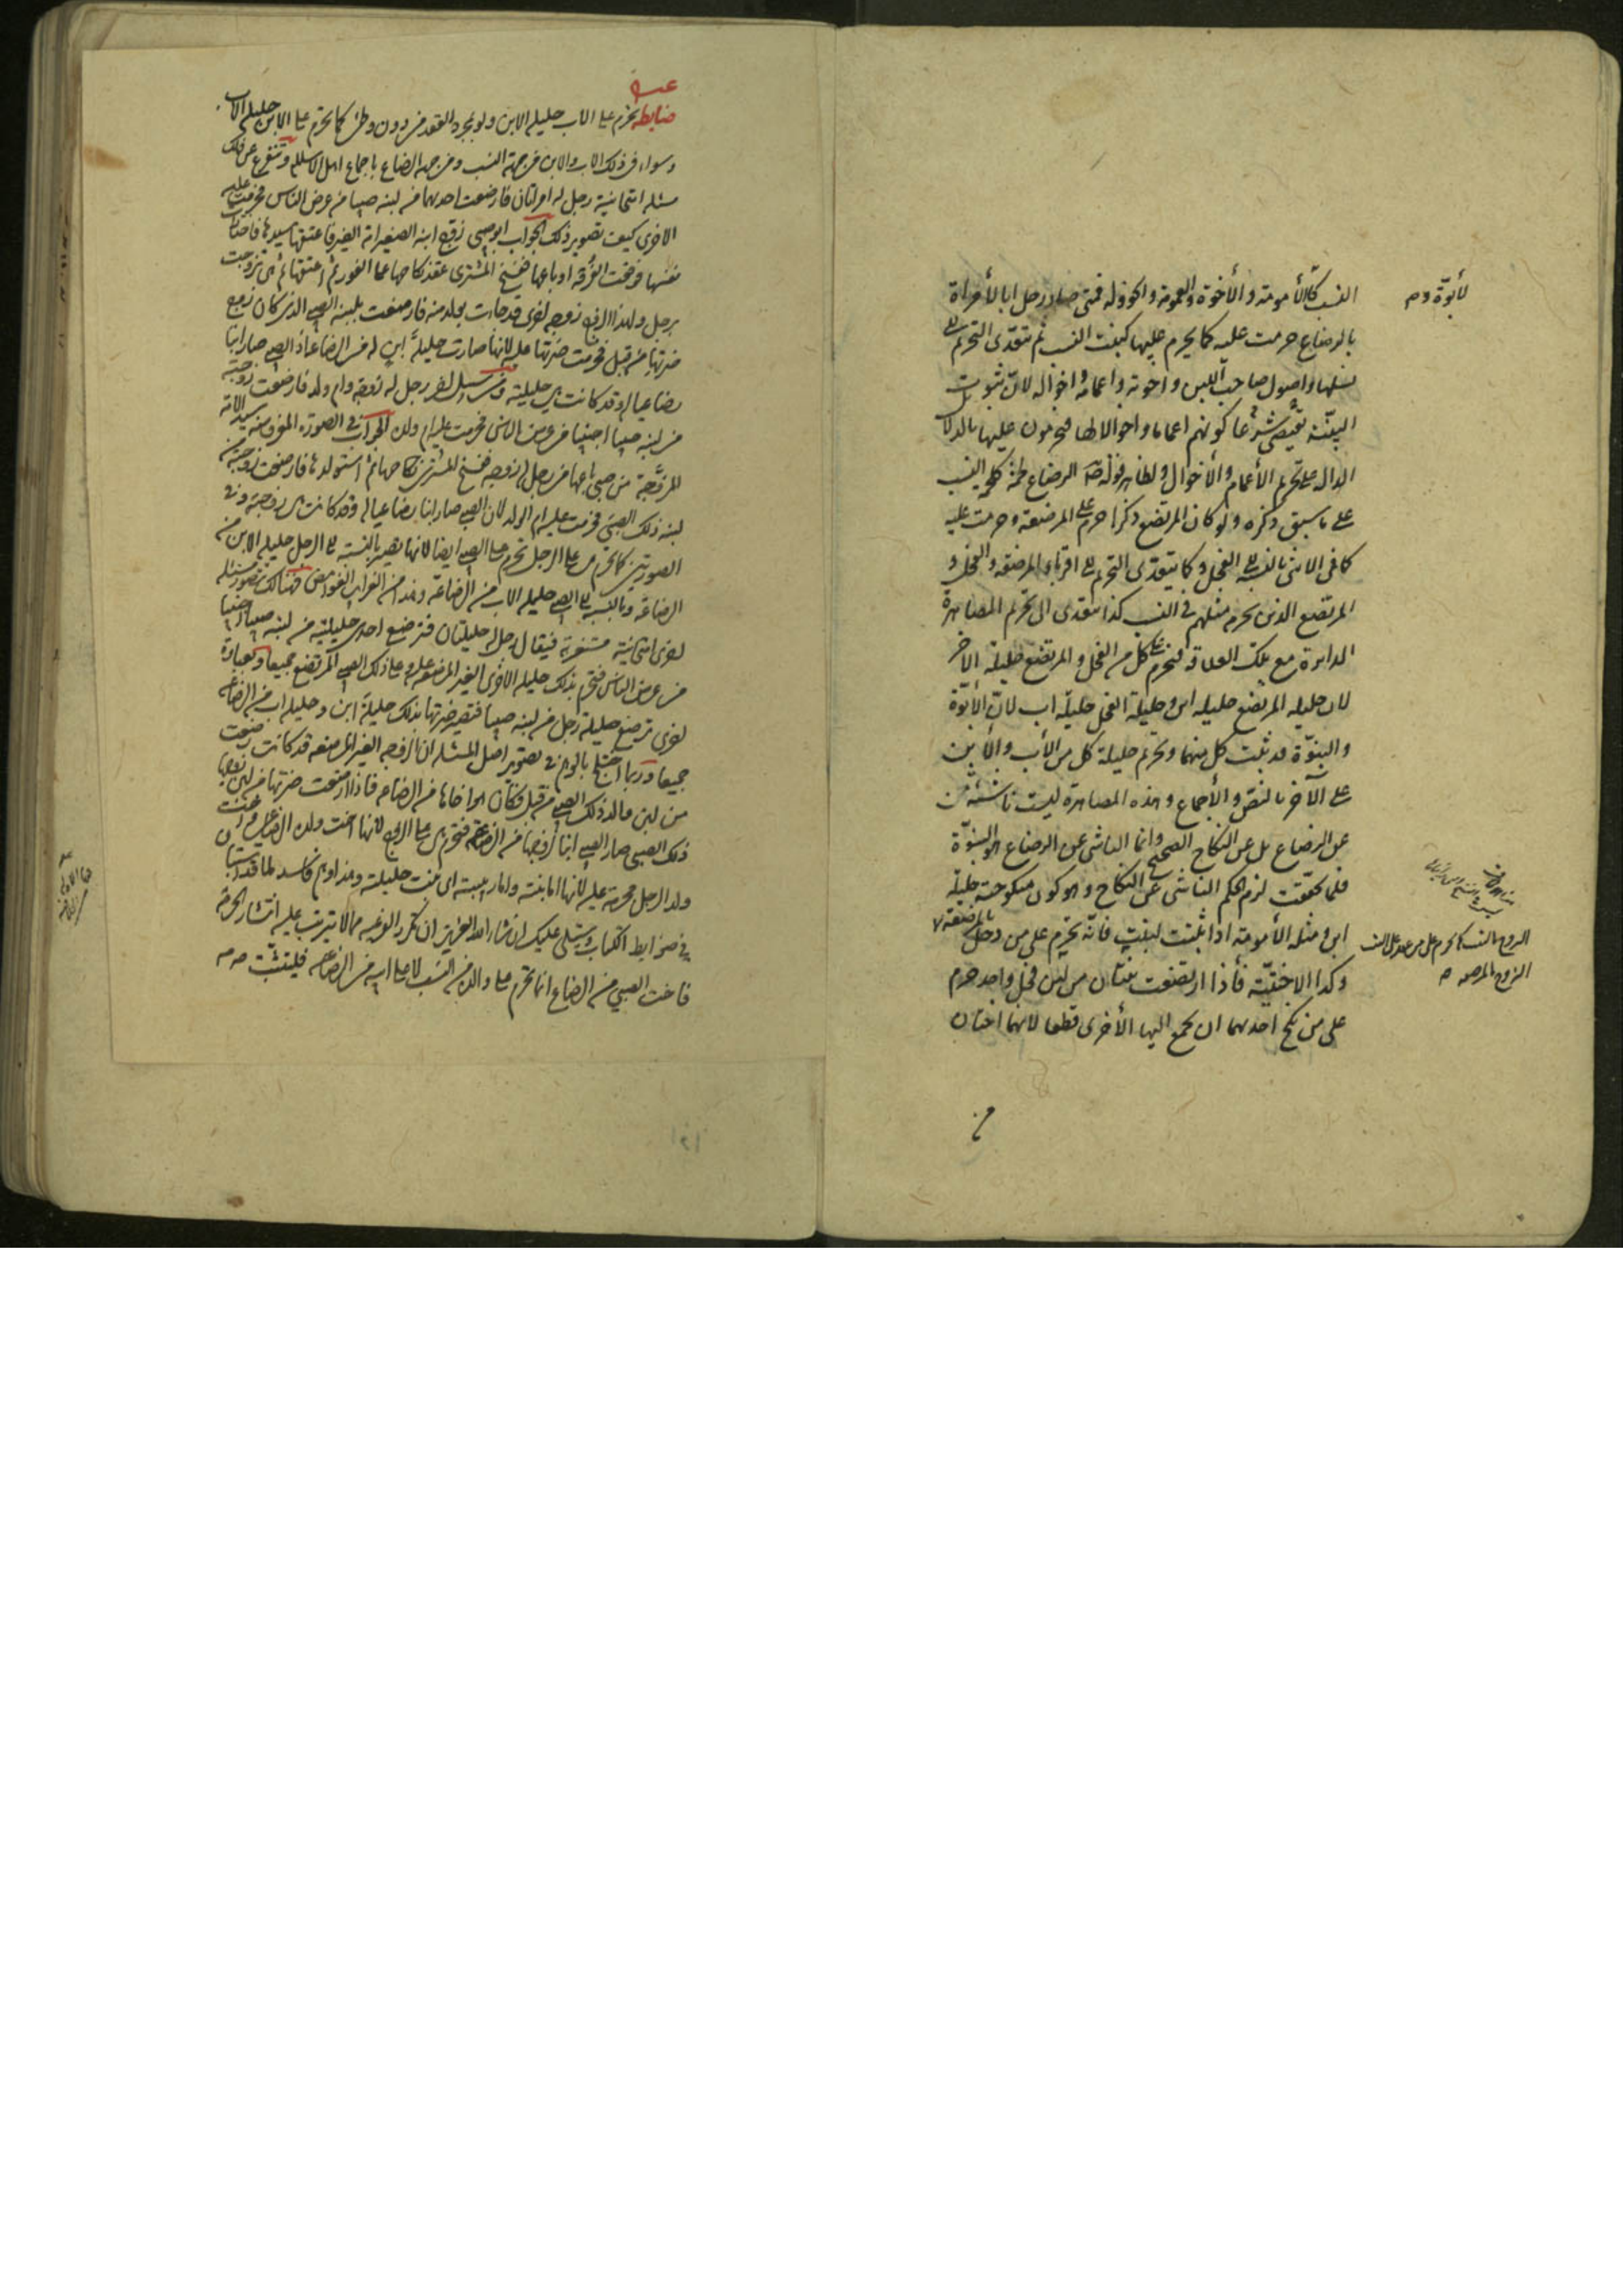 النسب كالأمومة والأخوة والعمومة والخؤولة فمتى صار رجل ابا لأمراة
بالرضاع حرمت عليه كما يحرم عليها كبنت النسب ثم تتعدى التحريم الى
نسلها واصول صاحب اللبن واخوته واعمامه واخواله لان ثبوت
البنتية تقتضى شرعا كونهم اعماما واخوالا لها فيحرمون عليها بالدلائل
الدالة على تحريم الأعمام والأخوال ولظاهر قوله الرضاع لحمة كلحمة النسب
على ما سبق ذكره ولو كان المرتضع ذكرا حرم على المرضعة وحرمت عليه
كما فى الانثى بالنسبة الى الفحل وكما يتعدى التحريم الى اقرباء المرضعة والفحل و
المرتضع الذين يحرم مثلهم فى النسب كذا يتعدى الى تحريم المصاهرة
الدايرة مع تلك العلاقة فيحرم على كل من الفحل والمرتضع حليلة الآخر
لان حليلة المرتضع حليلة ابن وحليلة الفحل حليلة اب لان الأبوة
والبنوة قد ثبتت كل منهما وتحريم حليلة كل من الأب والأبن
على الآخر بالنص والأجماع وهذه المصاهرة ليست ناشئة من
عن الرضاع بل عن النكاح الصحيح وانما الناشى عن الرضاع هو البنوة
فلما تحققت لزم الحكم الناشى عن النكاح وهو كون منكوحته حليلة
ابن ومثله الأمومة اذا ثبتت لبنت فانه تحرم على من دخل بالمرضعة
وكذا الاختية فأذا ارتضعت بنتان من لبن فحل واحد حرم
على من نكح احديهما ان يجمع اليها الأخرى قطعا لانهما اختان
لأبوة وم
ضابطه يحرم على الاب حليلة الابن ولو بمجرد العقد من دون وطئ كما تحرم على الابن حليلة الاب
وسواء فى ذلك الاب والابن من جهة النسب ومن جهة الرضاع باجماع اهل الاسلام وتتفرع عن ذلك
مسئلة امتحانية رجل له امراتان فارضعت احديهما من لبنه صبيا من عرض الناس فحرمت عليه
الاخرى كيف تصوير ذلك الجواب ابو صبى زوج ابنه الصغير امة الغير فاعتقها سيدها فاختارت
نفسها فوقعت الفرقة او باعها ففسخ المشترى عقد نكاحها على الفور ثم اعتقها ثم هى تزوجت
برجل ولهذا الزوج زوجة اخرى قد جاءت بولد منه فارضعت بلبنه الصبى الذى كان زوج
ضرتها من قبل فحرمت ضرتها عليه لانها صارت حليلة ابن له من الرضاعة اذ الصبى صار ابنا
رضاعيا له وقد كانت هى حليلته ومن سبيل اخر رجل له زوجة وام ولد فارضعت زوجته
من لبنه صبيا اجنبيا من عرض الناس فحرمت عليه ام ولده الجواب فى الصورة المفروضة سيد الامة
المزوجة من صبى باعها من رجل له زوجة ففسخ المشترى نكاحها ثم استولدها فارضعت زوجته من
لبنه ذلك الصبى فحرمت عليه ام الولد لان الصبى صار ابنا رضاعيا له وقد كانت هى زوجته وفى
الصورتين كما تحرم هى على الرجل تحرم على الصبى ايضا لانها تصير بالنسبة الى الرجل حليلة الابن من
الرضاعة وبالنسبة الى الصبى حليلة الاب من الرضاعة وهذا من الغرايب الغوامض فهنالك تتصور مسئلة
اخرى امتحانية مستغربة فيقال رجل له حليلتان فترضع احدى حليلتيه من لبنه صبيا اجنبيا
من عرض الناس فتحرم بذلك حليلة الاخرى الغير المرضعة عليه وعلى ذلك الصبى المرتضع جميعا وبعبارة
اخرى ترضع حليلة رجل من لبنه صبيا فتصير ضرتها بذلك حليلة ابن وحليلة اب من الرضاعة
جميعا وربما اختلج بالوهم فى تصوير اصل المسئلة ان الزوجة الغير المرضعة قد كانت رضعت
من لبن والد ذلك الصبى من قبل فكان هو اخاها من الرضاعة فاذا ارضعت ضرتها من لبن زوجها
ذلك الصبى صار الصبى ابنا لزوجها من الرضاعة فتحرم هى على الزوج لانها اخت ولده الرضاعى واخت
ولد الرجل محرمة عليه لانها اما بنته واما ربيبته اى بنت حليلته وهذا وهم فاسد لما قد استبان
فى ضوابط الكتاب وسيتلى عليك ان شاء الله العزيز ان نكرر الوعيد مما لا يترتب عليه انتشار الحرمة
فاخت الصبى من الرضاع انما تحرم على والده من النسب لا على ابيه من الرضاعه فليتثبت